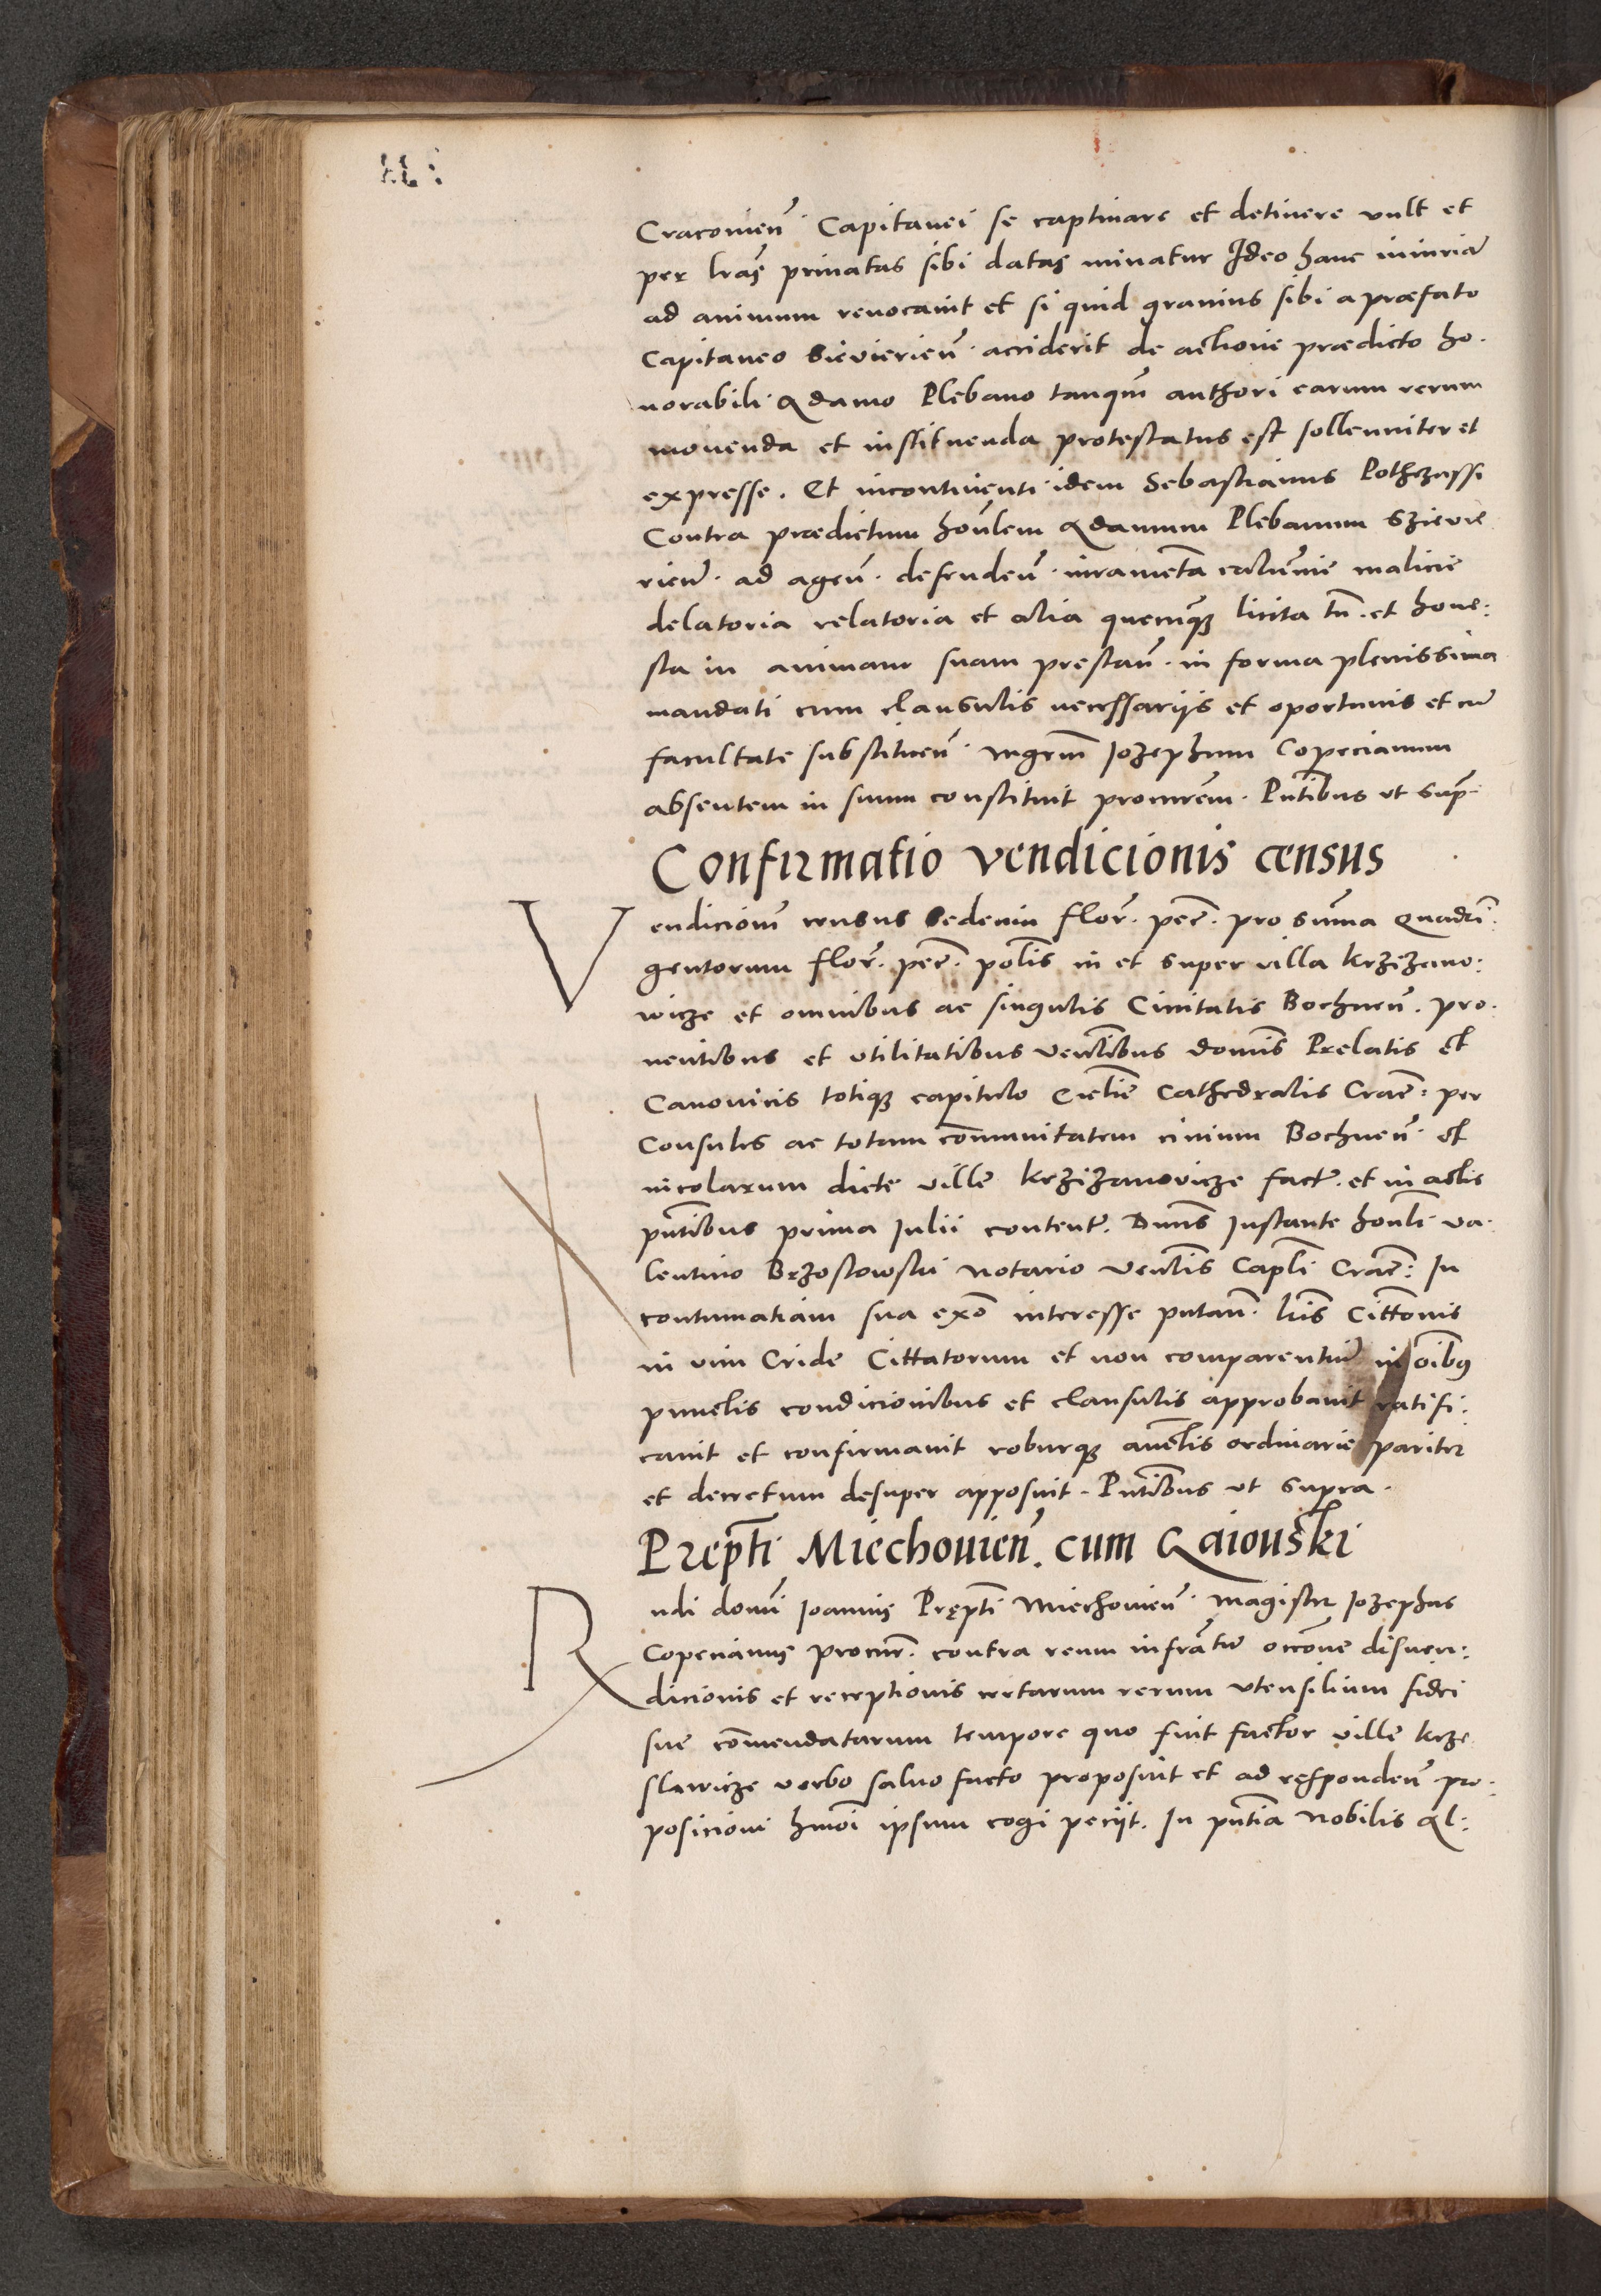 Cracouien̄ Capitanei se captiuare et detinere vult et
per lr̄as priuatas sibi datas minatur Ideo hanc iniuriā
ad animum reuocauit et si quid grauius sibi a præfato
Capitaneo Sieuierien̄ acciderit de actione prædicto ho-
norabili Adamo Plebano tanqm̄ authori earum rerum
mouenda et instituenda protestatus est sollenniter et
expresse. Et incontinenti idem Sebastianus
Contra prædictum hon̄lem Adamum Plebanum Szieuie
rien̄ ad agen̄. defenden̄. iuramēta calum̄nie malicie
delatoria relatoria et alia quecūq3 licita tn̄. et hone:
sta in animam suam prestan̄. in forma plenissima
mandati cum clausulis necessariis et oportunis et cū
facultate substituen̄. mgr̄m Iozephum Copecianum
absentem in suum constituit procurēm. Pn̄tibus ut sup̄
Confirmatio vendicionis census
Vendicionē census Sedecim flor̄. pec̄. pro sum̄a Quadri
gentorum flor̄. pec̄. pol̄is in et super villa Krzizano:
wicze et omnibus ac singulis Ciuitatis Bochnen̄. pro:
uentibus et vtilitatibus ven̄libus domīs Prelatis et
Canonicis totiq3 capitulo Ecclīe Cathedralis Crac̄: per
Consules ac totam com̄unitatem ciuium Bochnen̄ et
incolarum dicte ville Krzizanovicze factā. et in actis
pn̄tibus prima Iulii contentā. Dn̄us Instante hon̄li Va-
lentino Brzostowski notario ven̄lis Capl̄i Crac̄: In
contumatiam sua ex̄o interesse putan̄. lr̄is Cittōnis
in vim Cride Cittatorum et non comparentiū in oībus
punctis condicionibus et clausulis approbauit ratifi:
cauit et confirmauit roburq3 auc̄tis ordinarie pariter
et decretum desuper apposuit. Pn̄tibus ut supra.
Prepti Miechouien̄. cum Gaiouski
Rndi domī Ioannis Prepti Miechouien̄. Magister Iozephus
Copecianus procur̄. contra reum infrātū occōne disuen:
dicionis et receptionis certarum rerum vtensilium fidei
sue com̄endatarum tempore quo fuit factor ville Krze
slawicze verbo saluo facto proposuit et ad responden̄ pro-
posicioni hm̄oi ipsum cogi peciit. In pn̄tia Nobilis Al: